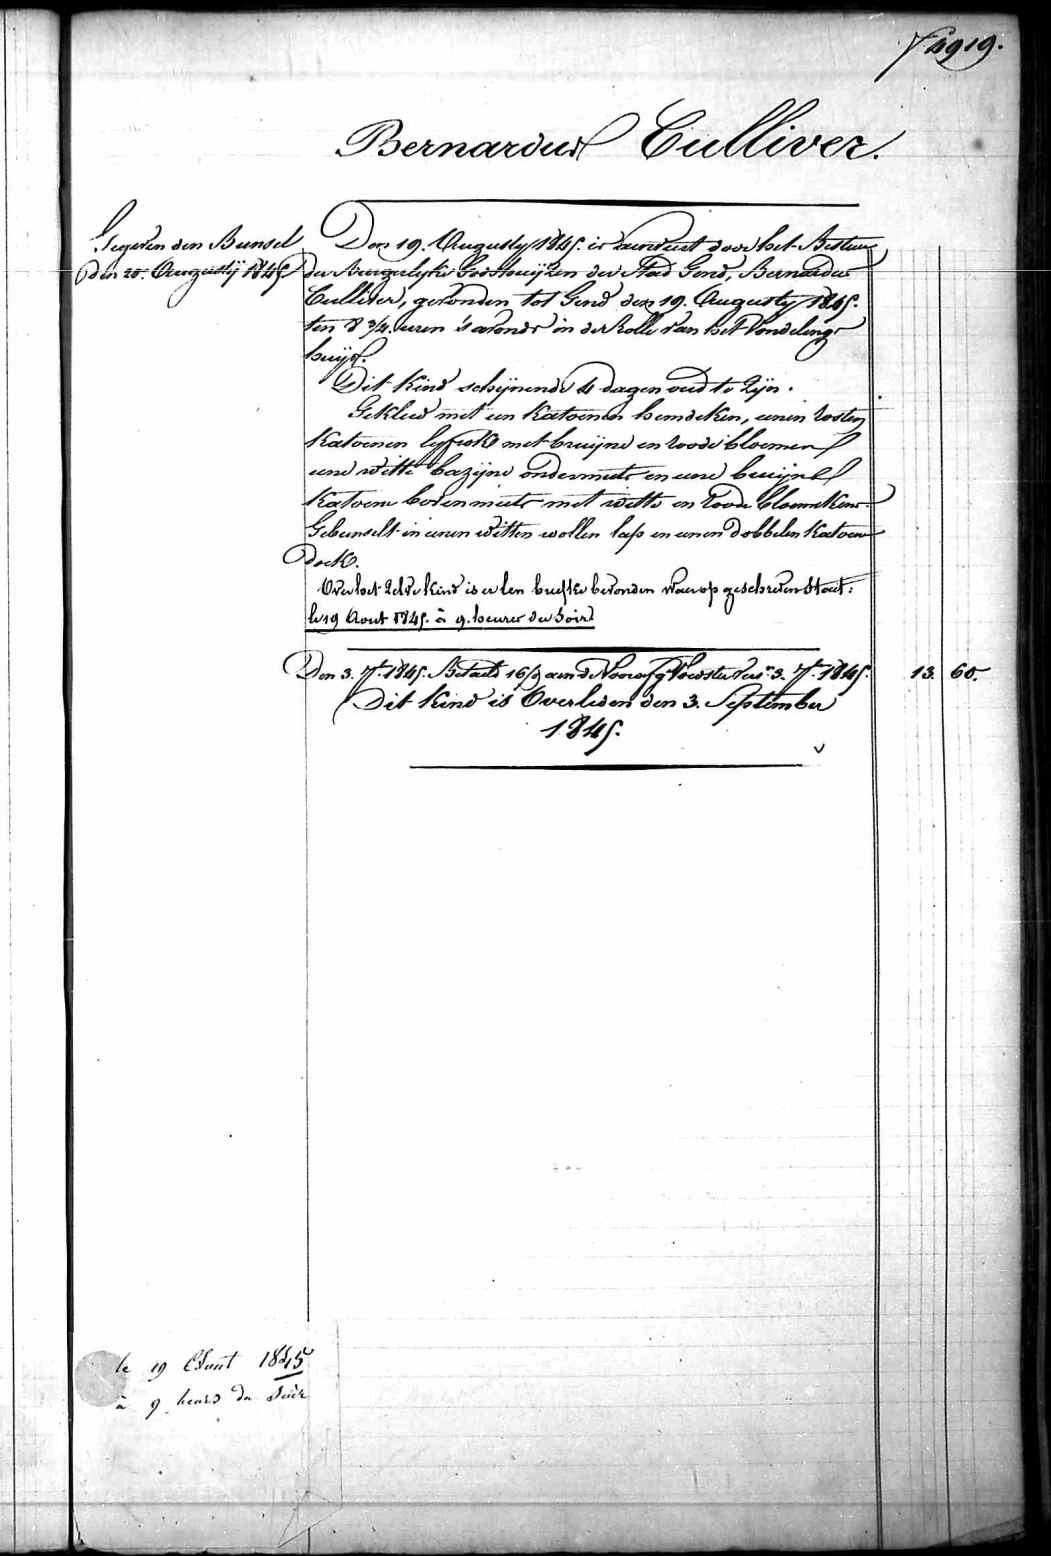 f 4919.
Bernardus Culliver.
Gegeven den Bunsel
den 20. Augustij 1845
Den 19. Augusty 1845. is aenveert door het Bestuur
der Burgerlyke Godshuijzen der Stad Gend, Bernardus
Culliver, gevonden tot Gend den 19. Augusty 1845.
ten 8 3/4. uren 's avonds in de Rolle van het Vondelings
huijs.
Dit Kind schijnende 4 dagen oud te Zijn.
Gekleed met een Katoenen hemdeken, eenen rosten
Katoenen lyfrok met bruijne en roode bloemen
eene witte bazijne ondermuts en eene bruijne
Katoene bovenmuts met witte en roode bloemekens.
Gebunselt in eenen witten wollen lap en eenen dobbelen Katoene
doek.
Over het Zelve Kind is er een briefke bevonden waerop geschreven Staet:
le 19 Aout 1845. à 9. heures du Soir
Den 3. 7r. 1845. Betaeld 16/9 aen de Voedster 3. 7r. 1845. 13. 60.
Dit Kind is Overleden den 3. September
1845.
le 19 Aout 1845
à 9 heurs du Soir